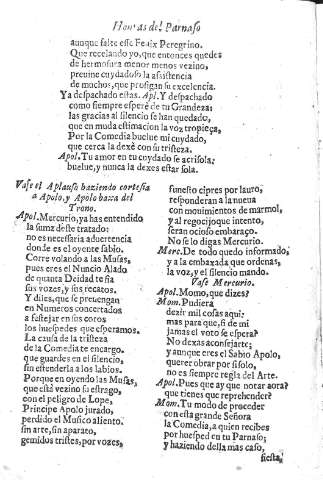 Honras del Parnaso
aunque falte esse Felix Peregrino.
Que recelando yo, que entonces quedes
de hermosura menor menos vezino,
preuine cuydadoso la assistencia
de mochos, que prosigan su excelencia.
Ya despachado estas. Apl. Y despachado
como siempre esperè de tu Grandeza:
las gracias al silencio se han quedado,
que en muda estimacion la voz tropieça,
Por la Comedia buelue mi cuydado,
que cerca la dexè con su tristeza.
Apol. Tu amor en tu cuydado se acrisola:
buelue, y nunca la dexes estar sola.
Vase el Aplauso haziendo cortesia
a Apolo, y Apolo baxa del
Trono.
Apol. Mercurio, ya has entendido
la suma deste tratado:
no es necessaria aduertencia
donde es el oyente sabio.
Corre volando a las Musas,
pues eres el Nuncio Alado
de quanta Deidad te fia
sus vozes, y sus recatos.
Y diles, que se preuengan
en Numeros concertados
a festejar en sus coros
los huespedes que esperamos.
La causa de la tristeza
de la Comedia te encargo.
que guardes en el silencio,
sin estenderla a los labios.
Porque en oyendo las Musas,
que està vezino su estrago,
con el peligro de Lope,
Principe Apolo jurado,
perdido el Musico aliento,
sin arte, sin aparato,
gemidos tristes, por vozes,
funesto cipres por lauro,
responderan a la nueua
con mouimientos de marmol,
y al regocijo que intento,
seran ocioso embaraço.
No se lo digas Mercurio.
Merc. De todo quedo informado,
y a la embaxada que ordenas,
la voz, y el silencio mando.
Vase Mercurio.
Apol. Momo, que dizes?
Mom. Pudiera
dezir mil cosas aqui:
mas para que, si de mi
jamas el voto se espera?
No dexas aconsejarte;
y aunque eres el Sabio Apolo,
querer obrar por si solo,
no es siempre regla del Arte.
Apol. Pues que ay que notar aora?
que tienes que reprehender?
Mom. Tu modo de proceder
con esta grande Señora
la Comedia, a quien recibes
por huesped en tu Parnaso;
y haziendo della mas caso,
fiesta,